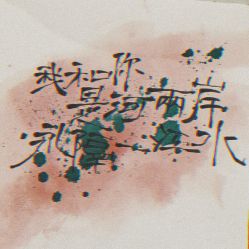 我和你
是河兩岸
永隔一江水